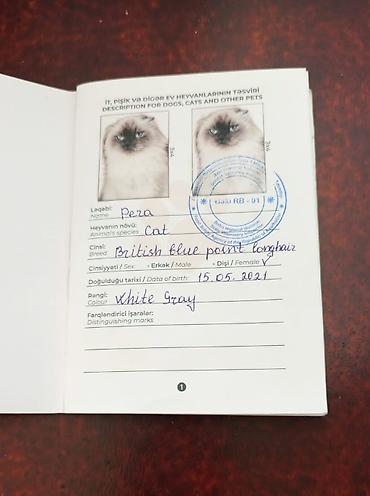 İT, PİŞİK VƏ DİGƏR EV HEYVANLARININ TƏSVİRİ
DESCRIPTION FOR DOGS, CATS AND OTHER PETS
3x4
3x4
RB - 01
Ləqəbi:
Name Pera
Heyvanın növü:
Animal's species Cat
Cinsi:
Breed British blue point longhair
Cinsiyyəti / Sex: • Erkək / Male • Dişi / Female V
Doğulduğu tarixi / Date of birth: 15.05.2021
Rəngi:
Colour White Gray
Fərqləndirici işarələr:
Distinguishing marks
1